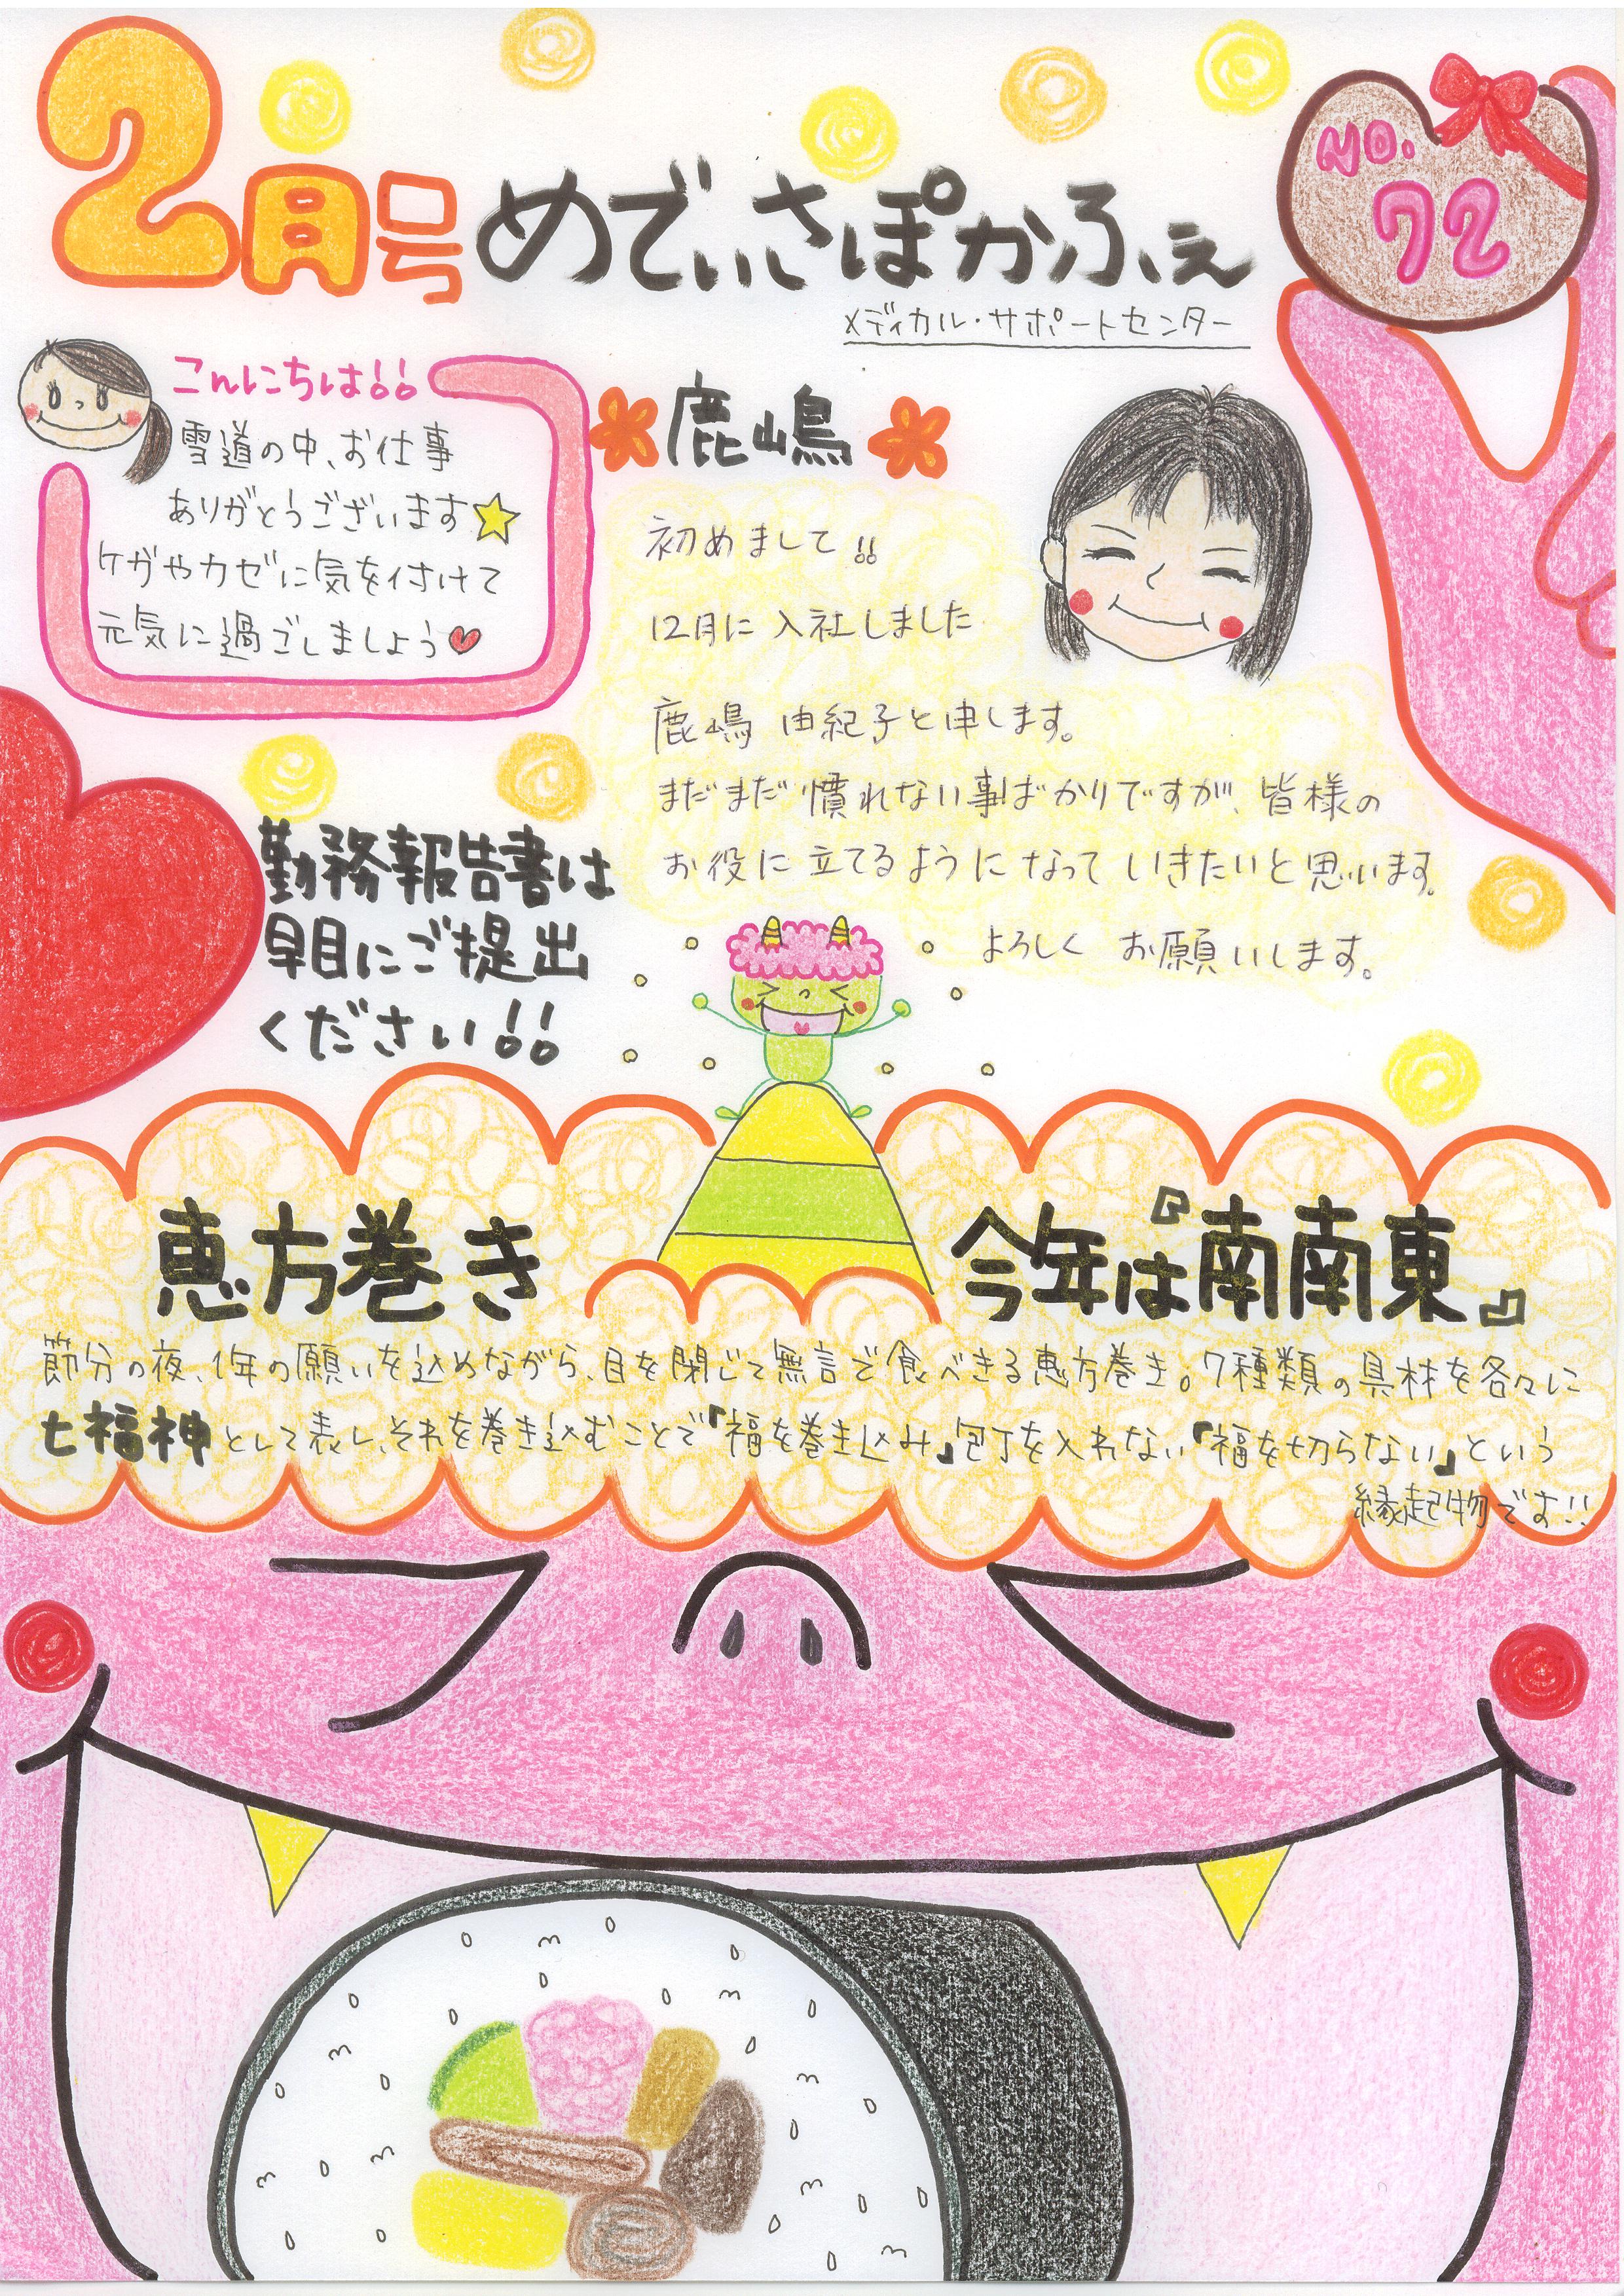 2月号 めでぃさぽかふぇ
NO.
72
メディカル・サポートセンター
こんにちは!!
雪道の中、お仕事
ありがとうございます
ケガやカゼに気を付けて
元気に過ごしましょう
鹿嶋
初めまして!!
12月に入社しました
鹿嶋 由紀子と申します。
まだまだ慣れない事ばかりですが、皆様の
お役に立てるようになっていきたいと思います。
よろしく お願いします。
勤務報告書は
早目にご提出
ください!!
恵方巻き 今年は『南南東』
節分の夜、1年の願いを込めながら、目を閉じて無言で食べきる恵方巻き。7種類の具材を各々に
七福神として表し、それを巻き込むことで『福を巻き込み』包丁を入れない『福を切らない』という
縁起物です!!